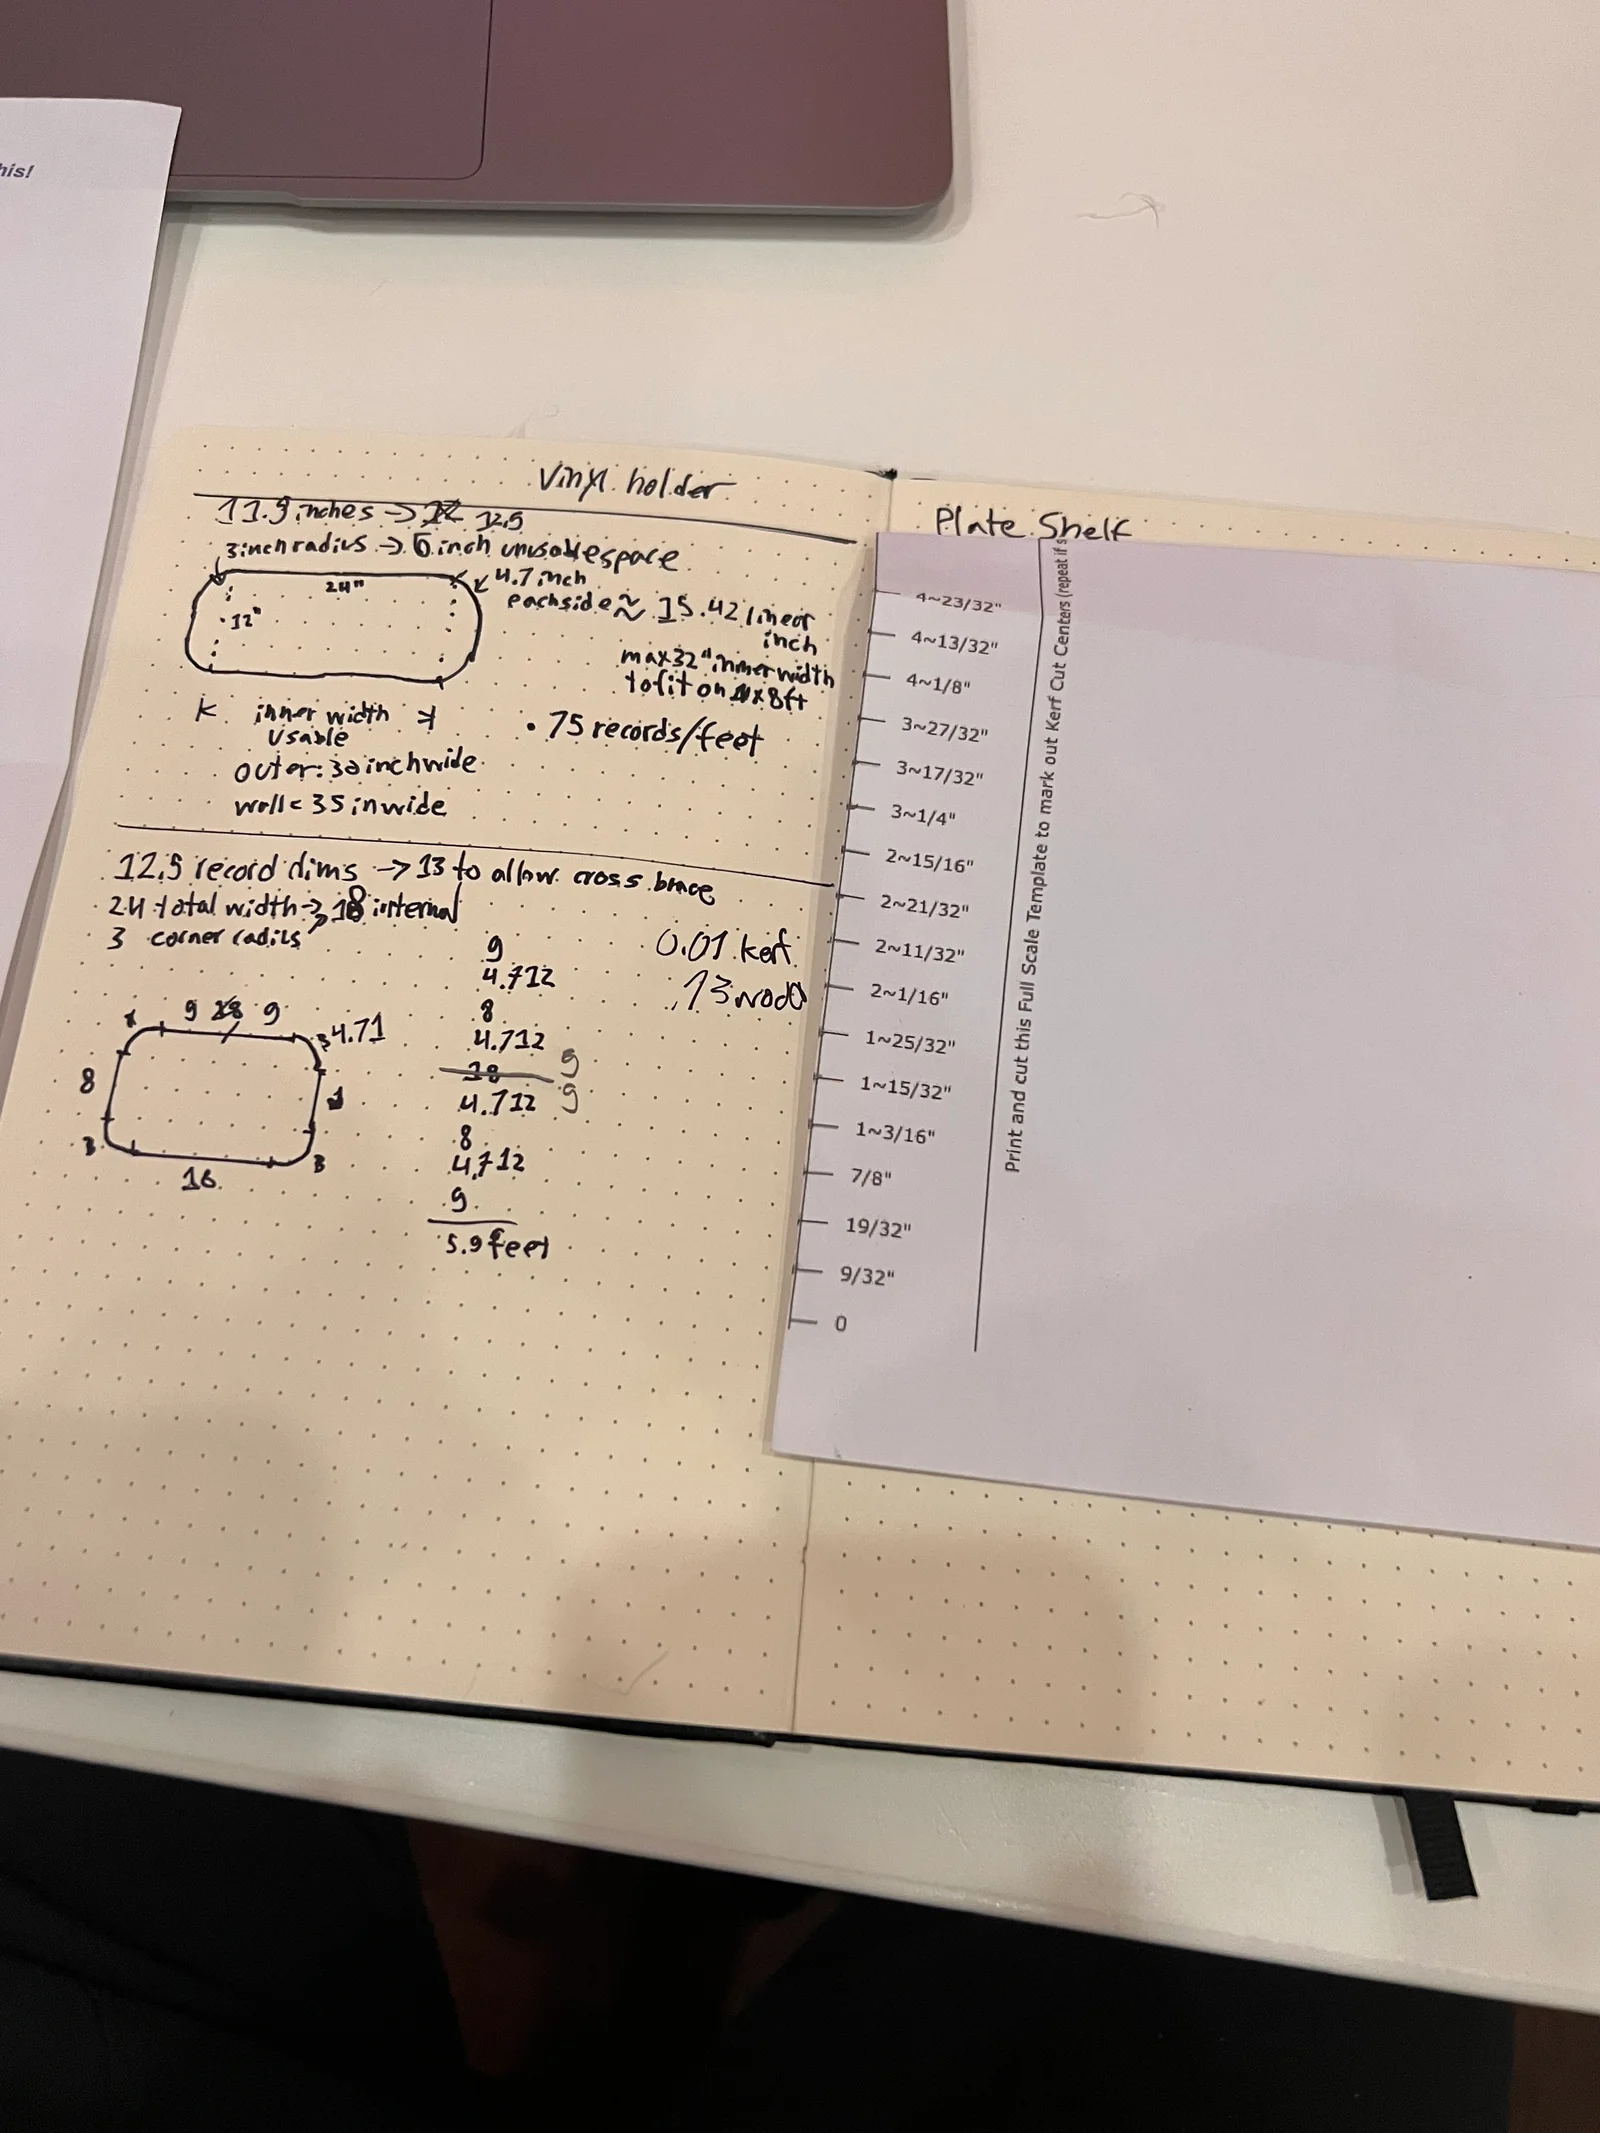 his!
Vinyl holder
11.9 inches -> 12.5
3 inch radius -> 6 inch unusable space
24"
4.7 inch
each side ≈ 15.42 linear
inch
12"
max 32" inner width
to fit on 4x8ft
K inner width
usable
• 75 records/feet
outer: 30 inch wide
wall < 35 in wide
12.5 record dims -> 13 to allow cross brace
24 total width -> 18 internal
3 corner radius
9
4.712
8
4.712
18 9
4.712 9
8
4.712
9
5.9 feet
0.01 kerf
.73 wood
9 18 9
3 4.71
8
3
3
16
Plate Shelf
4~23/32"
4~13/32"
4~1/8"
3~27/32"
3~17/32"
3~1/4"
2~15/16"
2~21/32"
2~11/32"
2~1/16"
1~25/32"
1~15/32"
1~3/16"
7/8"
19/32"
9/32"
0
Print and cut this Full Scale Template to mark out Kerf Cut Centers (repeat if s